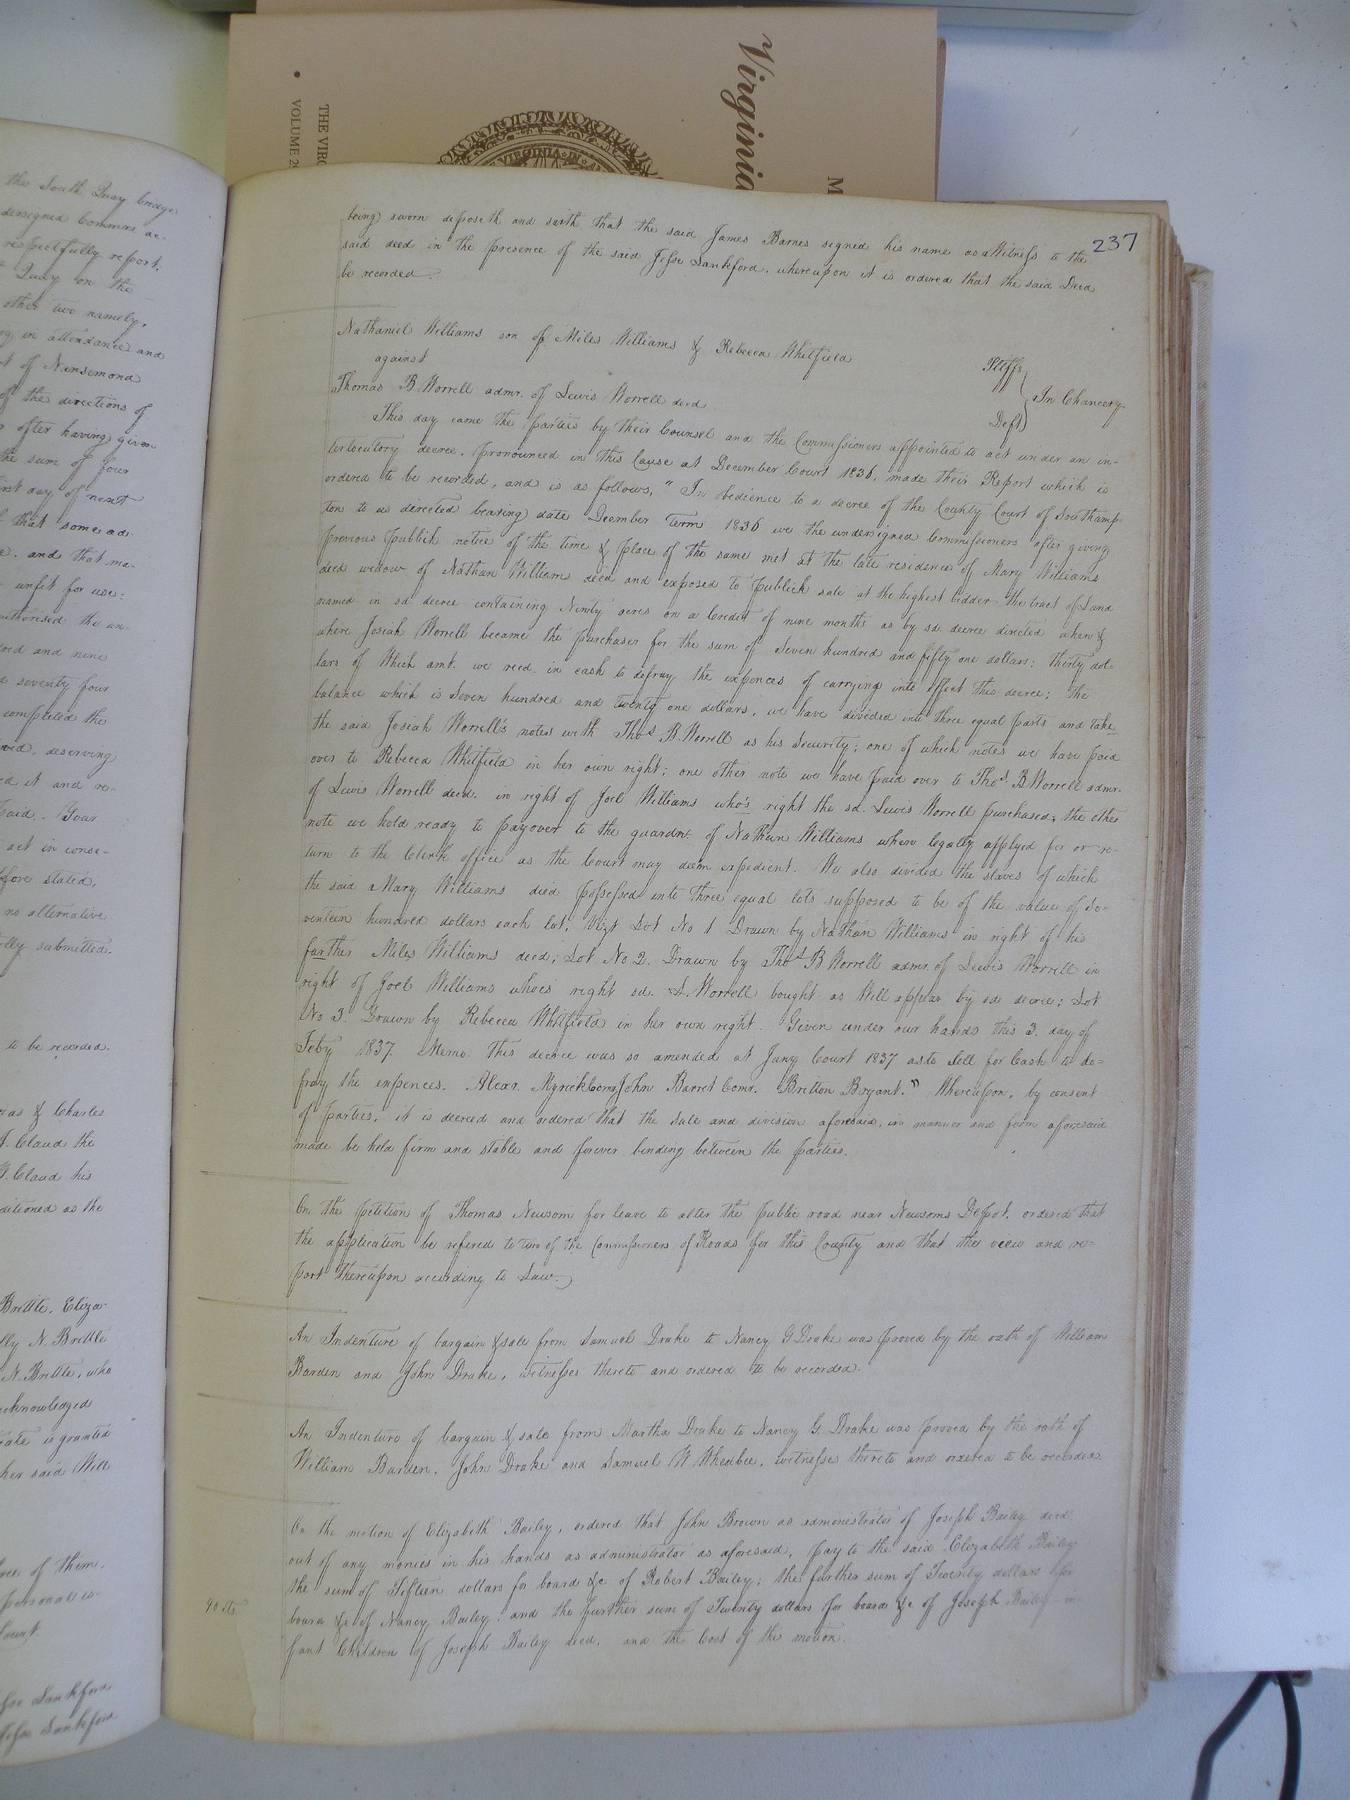 Virginia
THE VIRG
VOLUME 2
M
VIRGINIA
the South Quay bridge
undersigned Commrs
respectfully report,
Quay on the
other two namely,
in attendance and
of Nansemond
of the directions of
after having given
the sum of four
first day of next
that some
and that
unfit for use:
authorised the
and nine
seventy four
completed the
deserving
it and
paid. Your
act in
before stated,
no alternative
submitted.
to be recorded.
& Charles
Claud the
Claud his
as the
Brittle, Eliza
N. Brittle
N. Brittle, who
acknowledged
is granted
her said Will
of them.
personal
Court.
Jesse Lankford
Jesse Lankford
237
being sworn deposeth and saith that the said James Barnes signed his name as a Witness to the
said deed in the presence of the said Jesse Lankford. whereupon it is ordered that the said Deed
be recorded.
Nathaniel Williams son of Miles Williams & Rebecca Whitfield Pltffs
against
In Chancery
Thomas B. Worrell admr. of Lewis Worrell decd. Deft
This day came the parties by their Counsel and the Commissioners appointed to act under an in-
terlocutory decree, pronounced in this Cause at December Court 1836, made their Report which is
ordered to be recorded, and is as follows, " In obedience to a decree of the County Court of Southamp-
ton to us directed bearing date December Term 1836 we the undersigned Commissioners after giving
previous publick notice of the time & place of the same met at the late residence of Mary Williams
decd widow of Nathan Williams decd and exposed to Publick sale at the highest bidder the tract of Land
named in sd decree containing Ninety acres on a Credit of nine months as by sd. decree directed when &
where Josiah Worrell became the purchaser for the sum of Seven hundred and fifty one dollars; thirty dol-
lars of Which amt. we recd. in cash to defray the expences of carrying into effect this decree; the
balance which is Seven hundred and twenty one dollars, we have divided into three equal parts and take
the said Josiah Worrell's notes with Thos. B. Worrell as his Security; one of which notes we have paid
over to Rebecca Whitfield in her own right; one other note we have paid over to Thos. B Worrell admr.
of Lewis Worrell decd. in right of Joel Williams who's right the sd. Lewis Worrell purchased; the other
note we hold ready to pay over to the guardn of Nathan Williams when legally applyed for or re-
turn to the Clerk office as the Court may deem expedient. We also divided the slaves of which
the said Mary Williams died possessed into three equal lots supposed to be of the value of Se-
venteen hundred dollars each lot, Vizt Lot No 1 Drawn by Nathan Williams in right of his
farther Miles Williams decd; Lot No 2. Drawn by Thos B Worrell admr. of Lewis Worrell in
right of Joel Williams whoes right sd. L. Worrell bought as Will appear by sd decree; Lot
No 3. Drawn by Rebecca Whitfield in her own right. Given under our hands this 3. day of
Feby 1837. Memo. This decree was so amended at Jany Court 1837 as to Sell for Cash to de-
fray the expences. Alexr. Myrick Comr John Barret Comr. Britton Bryant." Whereupon, by consent
of parties, it is decreed and ordered that the Sale and division aforesaid, in manner and form aforesaid
made be held firm and stable and forever binding between the parties.
On the petition of Thomas Newsom for leave to alter the public road near Newsoms Depot. ordered that
the application be refered to two of the Commissioners of Roads for this County and that they view and re-
port thereupon according to Law.
An Indenture of bargain & sale from Samuel Drake to Nancy G Drake was proved by the oath of William
Barden and John Drake, witnesses thereto and ordered to be recorded.
An Indenture of bargain & sale from Martha Drake to Nancy G. Drake was proved by the oath of
William Barden, John Drake and Samuel W Whedbee, witnesses thereto and ordered to be recorded.
On the motion of Elizabeth Bailey, ordered that John Brown as administrator of Joseph Bailey decd.
out of any monies in his hands as administrator as aforesaid, pay to the said Elizabeth Bailey
the sum of Fifteen dollars for board &c of Robert Bailey; the further sum of Twenty dollars for
90 cts
board &c of Nancy Bailey: and the further sum of Twenty dollars for board &c of Joseph Bailey in-
fant Children of Joseph Bailey decd, and the Cost of the motion.